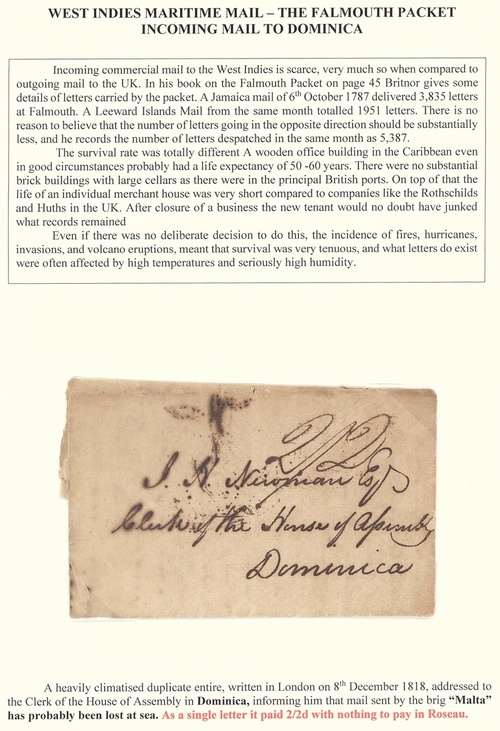 WEST INDIES MARITIME MAIL – THE FALMOUTH PACKET
INCOMING MAIL TO DOMINICA
Incoming commercial mail to the West Indies is scarce, very much so when compared to
outgoing mail to the UK. In his book on the Falmouth Packet on page 45 Britnor gives some
details of letters carried by the packet. A Jamaica mail of 6th October 1787 delivered 3,835 letters
at Falmouth. A Leeward Islands Mail from the same month totalled 1951 letters. There is no
reason to believe that the number of letters going in the opposite direction should be substantially
less, and he records the number of letters despatched in the same month as 5,387.
The survival rate was totally different A wooden office building in the Caribbean even
in good circumstances probably had a life expectancy of 50 -60 years. There were no substantial
brick buildings with large cellars as there were in the principal British ports. On top of that the
life of an individual merchant house was very short compared to companies like the Rothschilds
and Huths in the UK. After closure of a business the new tenant would no doubt have junked
what records remained
Even if there was no deliberate decision to do this, the incidence of fires, hurricanes,
invasions, and volcano eruptions, meant that survival was very tenuous, and what letters do exist
were often affected by high temperatures and seriously high humidity.
2/2
J. H. Newman Esq
Clerk of the House of Assembly
Dominica
A heavily climatised duplicate entire, written in London on 8th December 1818, addressed to
the Clerk of the House of Assembly in Dominica, informing him that mail sent by the brig “Malta”
has probably been lost at sea. As a single letter it paid 2/2d with nothing to pay in Roseau.